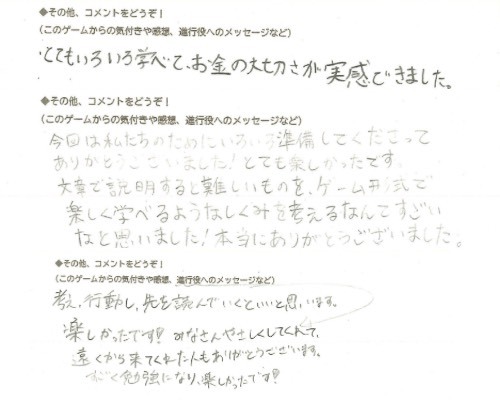 ◆その他、コメントをどうぞ！
(このゲームからの気付きや感想、進行役へのメッセージなど)
とてもいろいろ学べて、お金の大切さが実感できました。
◆その他、コメントをどうぞ！
(このゲームからの気付きや感想、進行役へのメッセージなど)
今回は私たちのためにいろいろ準備してくださって
ありがとうございました！とても楽しかったです。
文章で説明すると難しいものを、ゲーム形式で
楽しく学べるようなしくみを考えるなんてすごい
なと思いました！本当にありがとうございました。
◆その他、コメントをどうぞ！
(このゲームからの気付きや感想、進行役へのメッセージなど)
考え、行動し、先を読んでいくといいと思います。
楽しかったです!! みなさんやさしくしてくれて、
遠くから来てくれた人もありがとうございます。
すごく勉強になり、楽しかったです!!